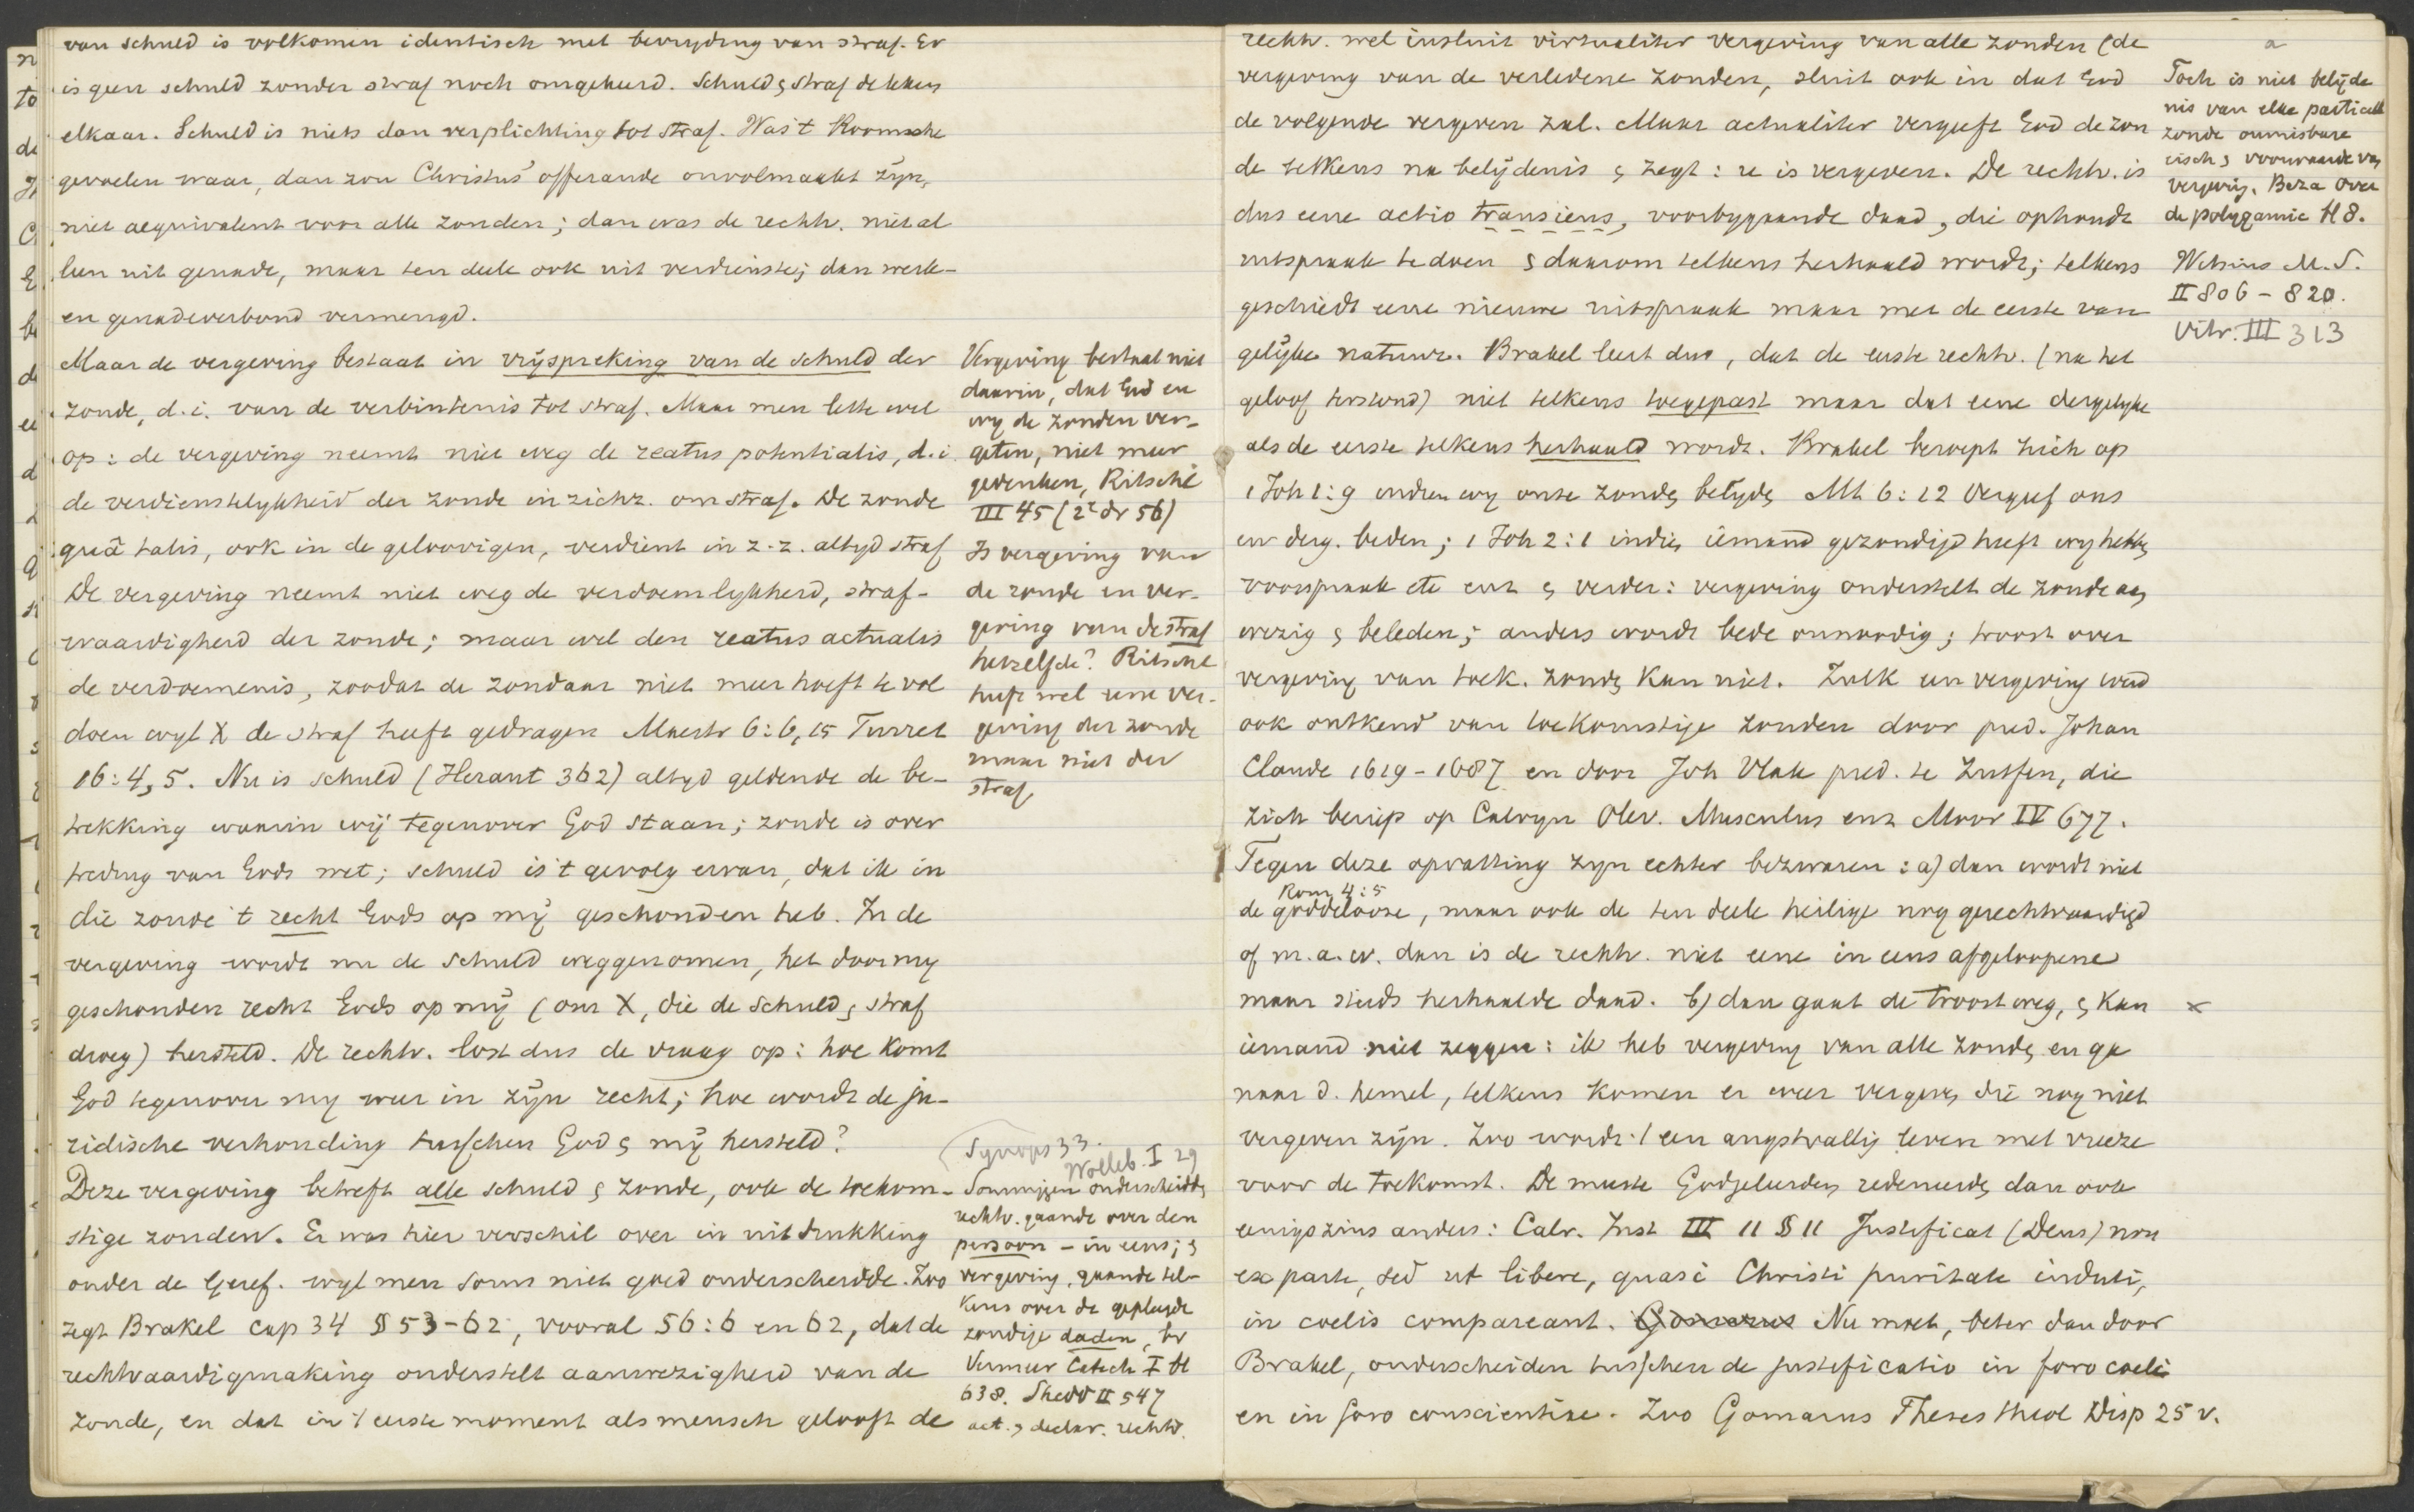 van schuld is volkomen identisch met bevryding van straf. Er
is geen schuld zonder straf noch omgekeerd. Schuld & straf dekken
elkaar. Schuld is niets dan verplichting tot straf. Was 't Roomsche
gevoelen waar, dan zou Christus' offerande onvolmaakt zijn,
niet aequivalent voor alle zonden; dan was de rechtv. niet al
leen uit genade, maar ten deele ook uit verdienste; dan werk-
en genadeverbond vermengd.
Maar de vergeving bestaat in vrijspreking van de schuld der
zonde, d.i. van de verbintenis tot straf. Maar men lette wel
op: de vergeving neemt niet weg de reatus potentialis, d.i.
de verdienstelykheid der zonde in zichz. om straf. De zonde
quâ talis, ook in de geloovigen, verdient in z.z. altyd straf
De vergeving neemt niet weg de verdoemlykheid, straf-
waardigheid der zonde; maar wel den reatus actualis
de verdoemenis, zoodat de zondaar niet meer hoeft te vol
doen wyl X de straf heeft gedragen Maestr 6:6,15 Turret
16:4,5. Nu is schuld (Heraut 362) altyd geldende de be-
trekking waarin wij tegenover God staan; zonde is over
treding van Gods wet; schuld is 't gevolg ervan, dat ik in
die zonde 't recht Gods op mij geschonden heb. In de
vergeving wordt nu de schuld weggenomen, het door my
geschonden recht Gods op mij (om X, die de schuld & straf
droeg) hersteld. De rechtv. lost dus de vraag op: hoe komt
God tegenover my weer in zijn recht; hoe wordt de ju-
ridische verhouding tusschen God & mij hersteld?
Deze vergeving betreft alle schuld & zonde, ook de toekom-
stige zonden. Er was hier verschil over in uitdrukking
onder de Geref. wyl men soms niet goed onderscheidde. Zoo
zegt Brakel cap 34 § 53-62, vooral 56:6 en 62, dat de
rechtvaardigmaking onderstelt aanwezigheid van de
zonde, en dat in 't eerste moment als mensch gelooft de
Vergeving bestaat niet
daarin, dat God en
wy de zonden ver-
geten, niet meer
gedenken, Ritschl
III 45 (2e dr 56)
Is vergeving van
de zonde en ver-
geving van de straf
hetzelfde? Ritschl
heeft wel eene ver-
geving der zonde
maar niet der
straf
Synops 33.
Wolleb. I 29
Sommigen onderscheidde
rechtv. gaande over den
persoon – in eens; &
vergeving, gaande tel-
kens over de gepleegde
zondige daden, bv
Vermeer Catech I bl
638. Shedd II 547
act. & declar. rechtv.
rechtv. wel insluit virtualiter vergeving van alle zonden (de
vergeving van de verledene zonden, sluit ook in dat God
de volgende vergeven zal. Maar actualiter vergeeft God de zon
de telkens na belijdenis & zegt: ze is vergeven. De rechtv. is
dus eene actio transiens, voorbygaande daad, die ophoudt
uitspraak te doen & daarom telkens herhaald wordt; telkens
geschiedt eene nieuwe uitspraak maar met de eerste van
gelijke natuur. Brakel leert dus, dat de eerste rechtv. (na het
geloof terstond) niet telkens toegepast maar dat eene dergelyke
als de eerste telkens herhaald wordt. Brakel beroept zich op
1 Joh 1:9 indien wy onze zonden belyden Mt 6:12 Vergeef ons
en derg. beden; 1 Joh 2:1 indien iemand gezondigd heeft wy hebben
voorspraak etc enz & verder: vergeving onderstelt de zonde aan
wezig & beleden; anders wordt bede onnoodig; troost over
vergeving van toek. zonden kan niet. Zulk een vergeving werd
ook ontkend van toekomstige zonden door pred. Johan
Claude 1619-1687 en door Joh Vlak pred. te Zutfen, die
zich beriep op Calvyn Olev. Musculus enz Moor IV 677.
Tegen deze opvatting zyn echter bezwaren: a) dan wordt niet
Rom 4:5
de goddelooze, maar ook de ten deele heilige nog gerechtvaardigd
of m.a.w. dan is de rechtv. niet eene in eens afgeloopene
maar steeds herhaalde daad. b) dan gaat de troost weg, & kan ×
iemand niet zeggen: ik heb vergeving van alle zonden en ga
naar d. hemel, telkens komen er weer vergeven, die nog niet
vergeven zijn. Zoo wordt 't een angstvallig leven met vreeze
voor de toekomst. De meeste Godgeleerden redeneerden dan ook
eenigszins anders: Calv. Inst III 11 § 11 Justificat (Deus) non
ex parte, sed ut libere, quasi Christi puritate induti,
in coelis compareant. Gomarus Nu moet, beter dan door
Brakel, onderscheiden tusschen de justificatio in foro coeli
en in foro conscientiae. Zoo Gomarus Theses theol Disp 25 v.
a
Toch is niet belijde
nis van elke particul
zonde onmisbare
eisch & voorwaarde van
vergevig. Beza over
de polygamie H 8.
Witsius M.S.
II 806 – 820.
Vitr. III 313